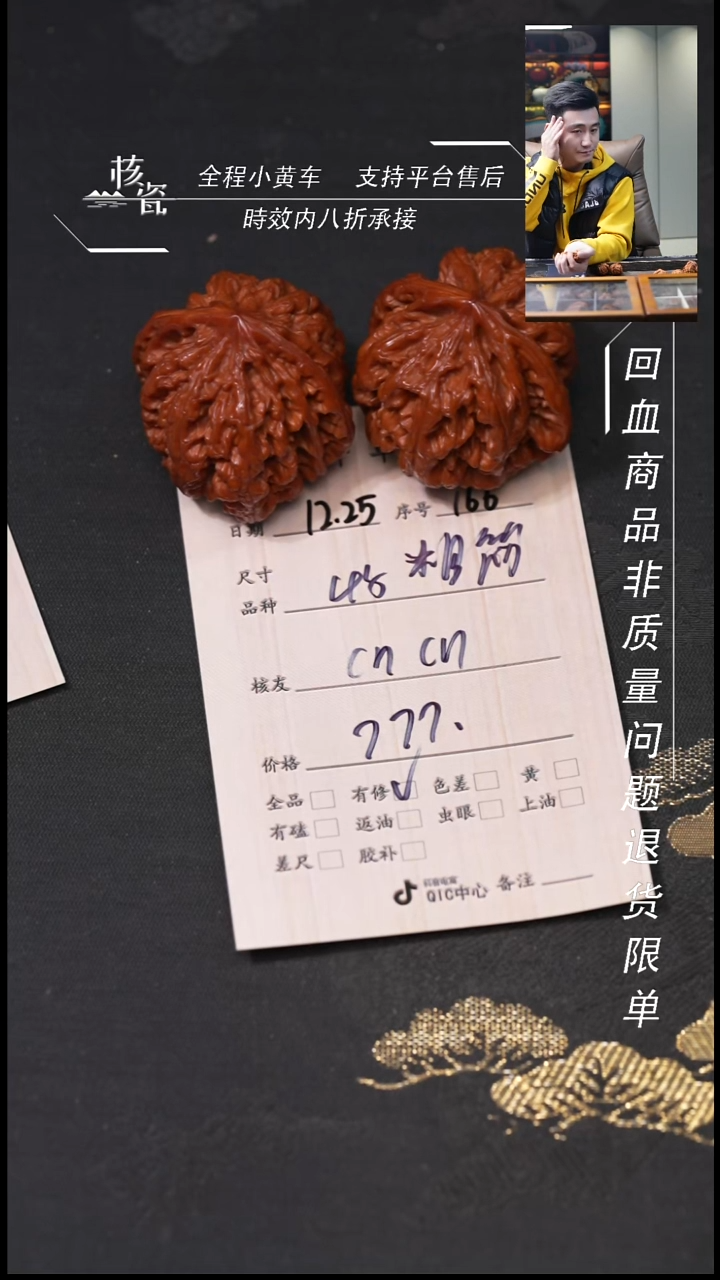 核瓷
全程小黄车 支持平台售后
時效内八折承接
回血商品非质量问题退货限单
日期 12.25 序号 166
尺寸
品种 48 粗筋
核友 cn cn
价格 777.
全品 有修 ✓ 色差 黄
有磕 返油 虫眼 上油
差尺 胶补
QIC中心 备注